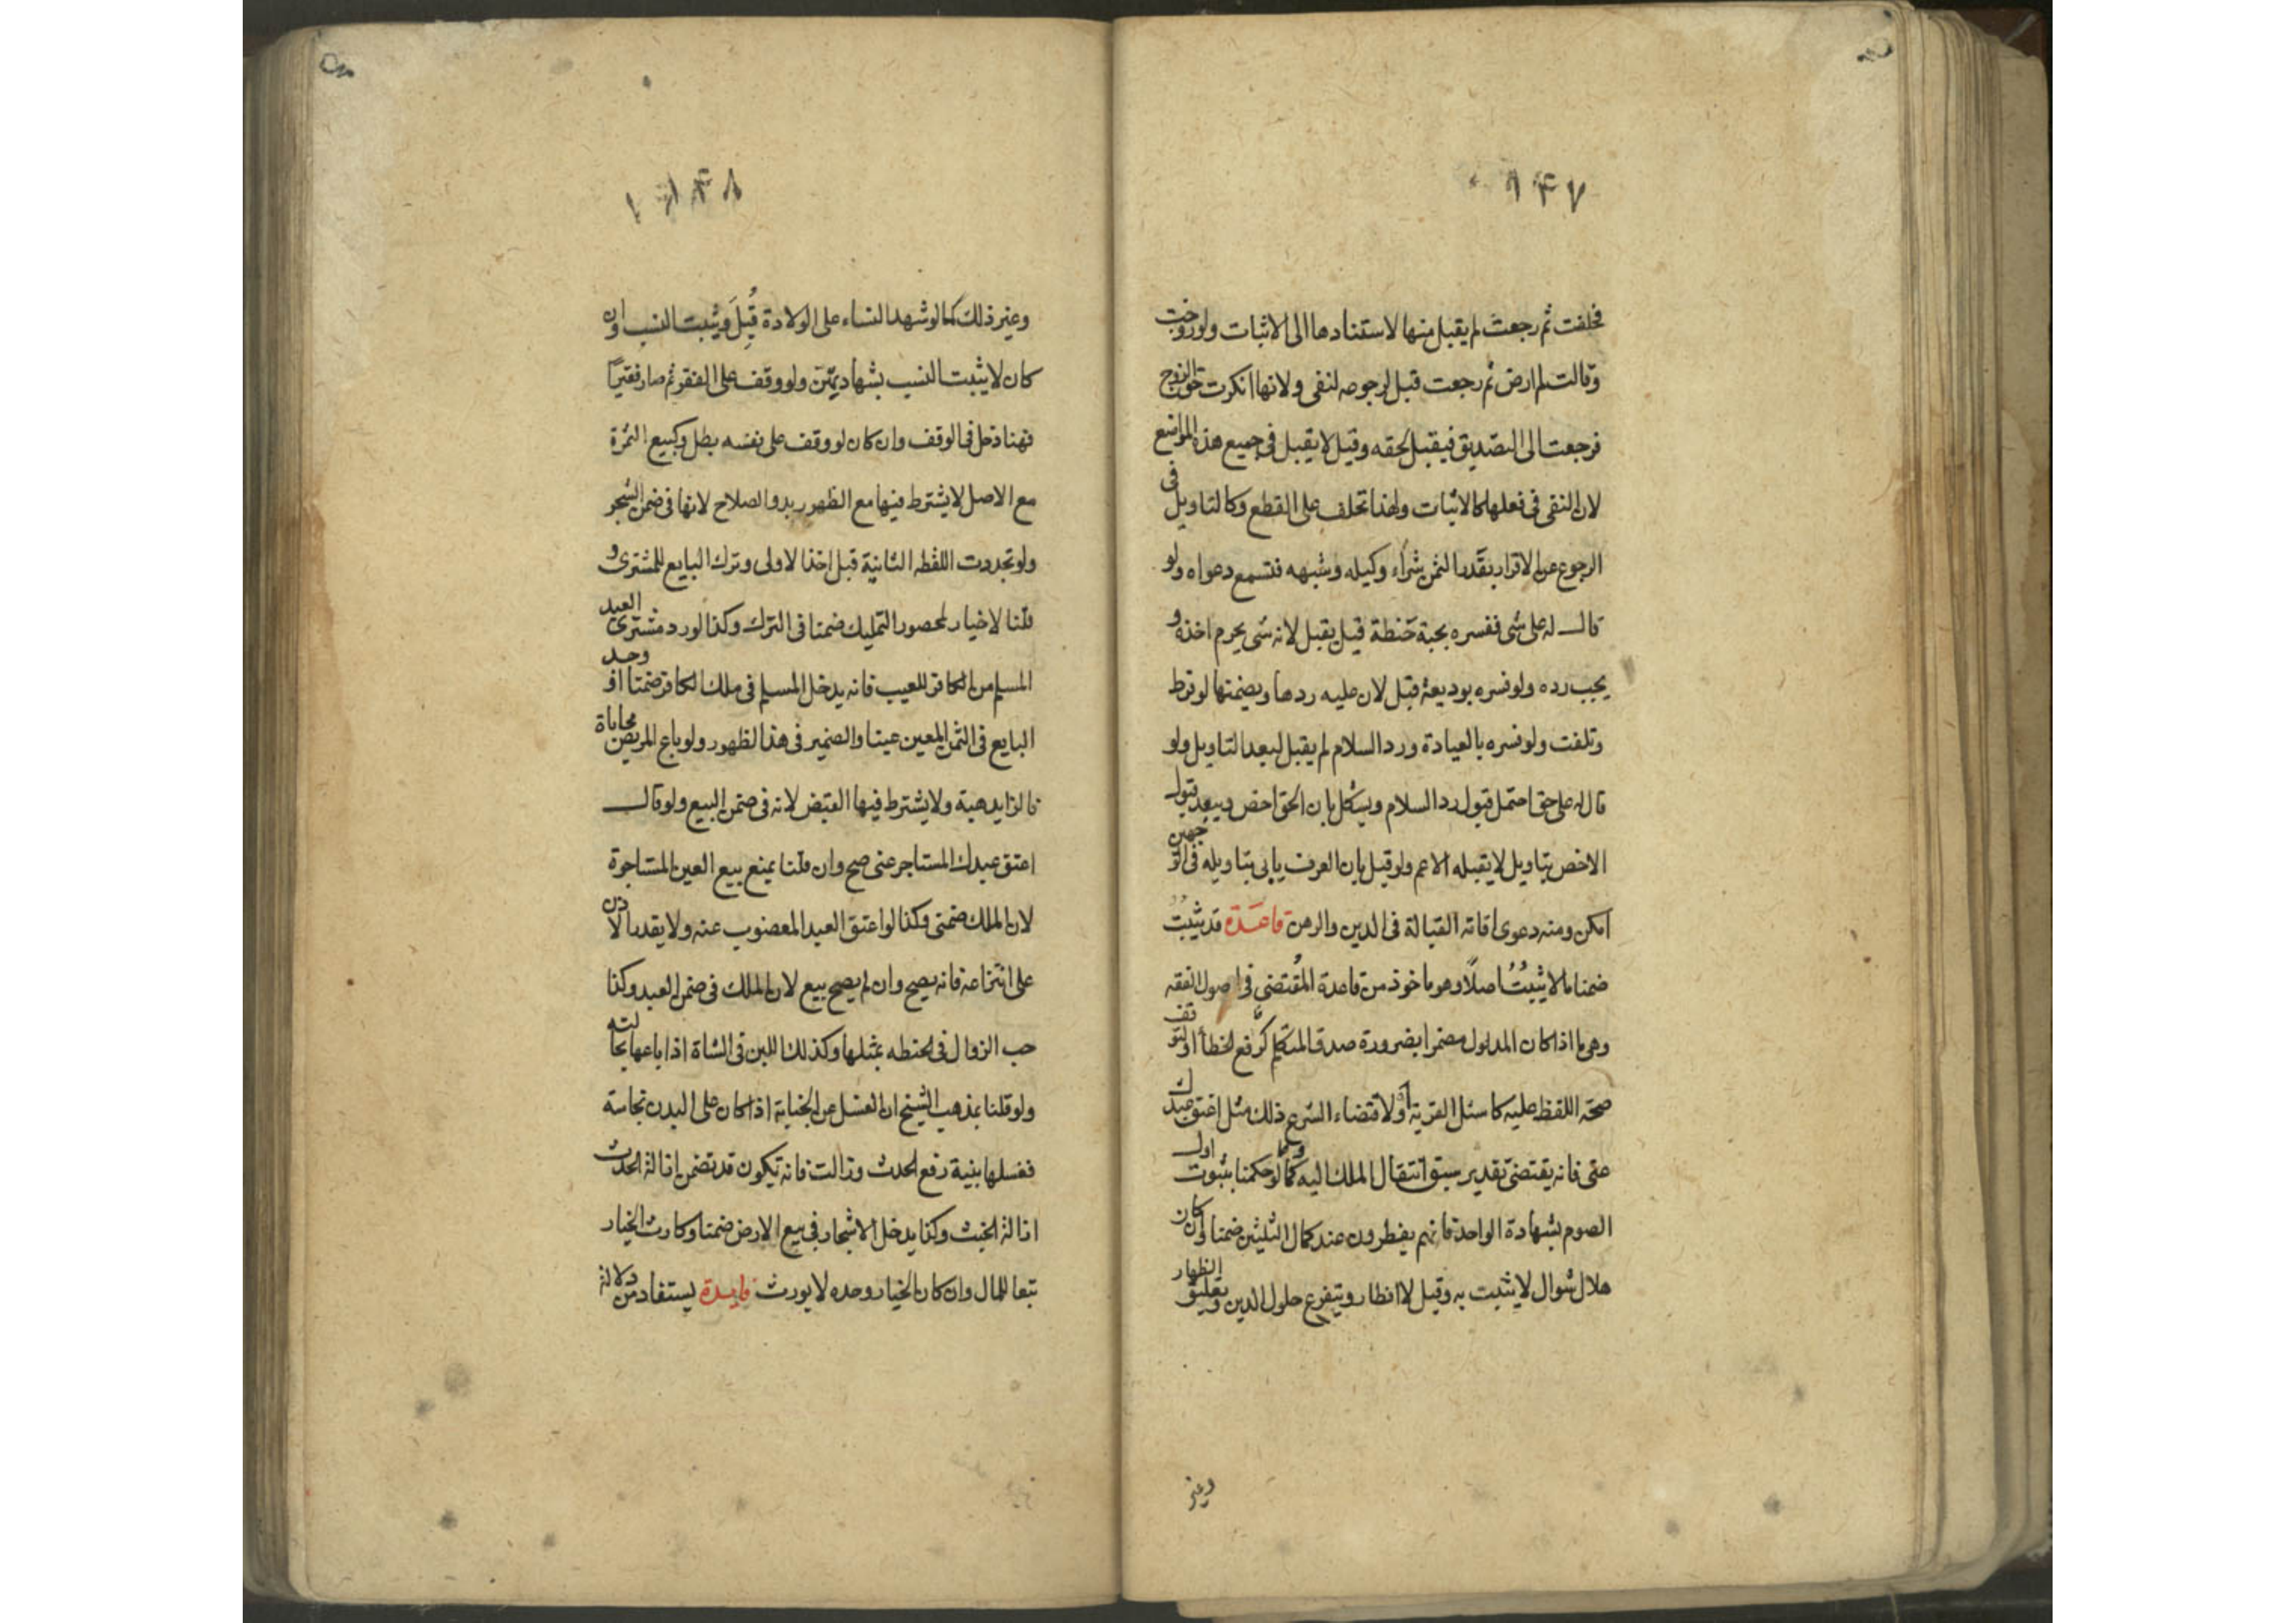 ١٤٧
فحلفت ثم رجعت لم يقبل منها لاستنادها الى الاثبات ولو زوجت
وقالت لم ارض ثم رجعت قبل لرجوعه لنفى ولانها انكرت حق الزوج
فرجعت الى التصديق فيقبل لحقه وقيل لا يقبل فى جميع هذه المواضع
لان النفى فى فعلها كالاثبات ولهذا تحلف على القطع وكالتاويل فى
الرجوع عن الاقرار بقدر الثمن بشراء وكيله وشبهه فتسمع دعواه ولو
قال له على شى ففسره بحبة حنطة قيل يقبل لانه شى يحرم اخذه و
يجب رده ولو فسره بوديعة قبل لان عليه ردها ويضمنها لو فرط
وتلفت ولو فسره بالعيادة ورد السلام لم يقبل لبعد التاويل ولو
قال له على حق احتمل قبول رد السلام ويشكل بان الحق اخص ويبعد قبول
الاخص بتاويل لا يقبله الاعم ولو قيل بان العرف يابى بتاويله فى الوجهين
امكن ومنه دعوى اقامة القبالة فى الدين والرهن قاعدة قد يثبت
ضمنا ما لا يثبت اصلا وهو ماخوذ من قاعدة المقتضى فى اصول الفقه
وهى ما اذا كان المدلول مضمرا بضرورة صدق المتكلم كرفع الخطأ او لتوقف
صحة اللفظ عليه كاسئل القرية او لاقتضاء الشرع ذلك مثل اعتق عبدك
عنى فانه يقتضى تقدير سبق انتقال الملك اليه وكما لو حكمنا بثبوت اول
الصوم بشهادة الواحد فانهم يفطرون عند كمال الثلثين ضمنا وان كان
هلال شوال لا يثبت به وقيل لا افطار ويتفرع حلول الدين وتعليق الظهار
وغير
١٤٨
وغير ذلك كما لو شهد النساء على الولادة قُبِلَ ويثبت النسب وان
كان لا يثبت النسب بشهادتهن ولو وقف على الفقر ثم صار فقيرا
فهنا دخل فى الوقف وان كان لو وقف على نفسه بطل وكبيع الثمرة
مع الاصل لا يشترط فيها مع الظهور بدو الصلاح لانها فى ضمن الشجر
ولو تجددت اللقطه الثانية قبل اخذ الاولى وترك البايع للمشترى و
قلنا لا خيار لحصور التمليك ضمنا فى الترك وكذا لو رد مشترى العبد
المسلم من الكافر للعيب فانه يدخل المسلم فى ملك الكافر ضمنا او وجد
البايع فى الثمن المعين عيبا والضمير فى هذا لظهور ولو باع المريض محاباة
فالزايد هبة ولا يشترط فيها القبض لانه فى ضمن البيع ولو قال
اعتق عبدك المستاجر عنى صح وان قلنا يمنع بيع العين المستاجرة
لان الملك ضمنى وكذا لو اعتق العبد المغصوب عنه ولا يقدر الاذن
على انتزاعه فانه يصح وان لم يصح بيع لان الملك فى ضمن العبد وكذا
حب الزوال فى الحنطه بمثلها وكذلك اللبن فى الشاة اذا باعها بحالته
ولو قلنا بمذهب الشيخ ان الغسل عن الجنابة اذا كان على البدن نجاسة
فغسلها بنية رفع الحدث وزالت فانه تكون قد تضمن ازالة الحدث
ازالة الخبث وكذا يدخل الاشجار فى بيع الارض ضمنا وكارث الخيار
تبعا للمال وان كان الخيار وحده لا يورث فايدة يستفاد من دلالة